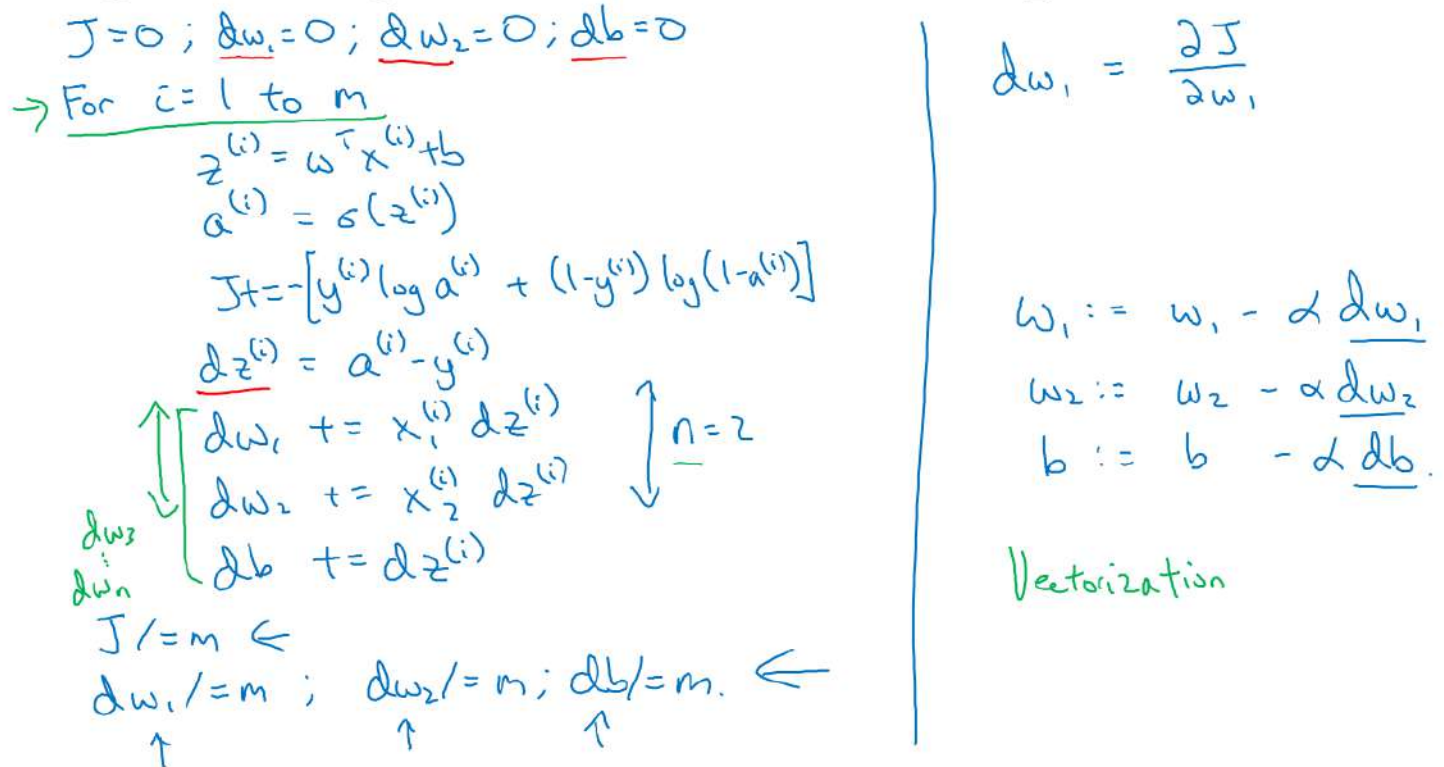 J=0 ; dw₁=0 ; dw₂=0 ; db=0
→ For i=1 to m
z⁽ⁱ⁾ = ωᵀx⁽ⁱ⁾+b
a⁽ⁱ⁾ = σ(z⁽ⁱ⁾)
J+=-[y⁽ⁱ⁾ log a⁽ⁱ⁾ + (1-y⁽ⁱ⁾) log(1-a⁽ⁱ⁾)]
dz⁽ⁱ⁾ = a⁽ⁱ⁾-y⁽ⁱ⁾
dw₁ += x₁⁽ⁱ⁾ dz⁽ⁱ⁾
dw₂ += x₂⁽ⁱ⁾ dz⁽ⁱ⁾
n=2
db += dz⁽ⁱ⁾
dw₃
⋮
dwₙ
J /=m ←
dw₁ /=m ; dw₂ /=m ; db /=m. ←
↑ ↑ ↑
dw₁ = ∂J/∂w₁
w₁ := w₁ - α dw₁
w₂ := w₂ - α dw₂
b := b - α db.
Vectorization